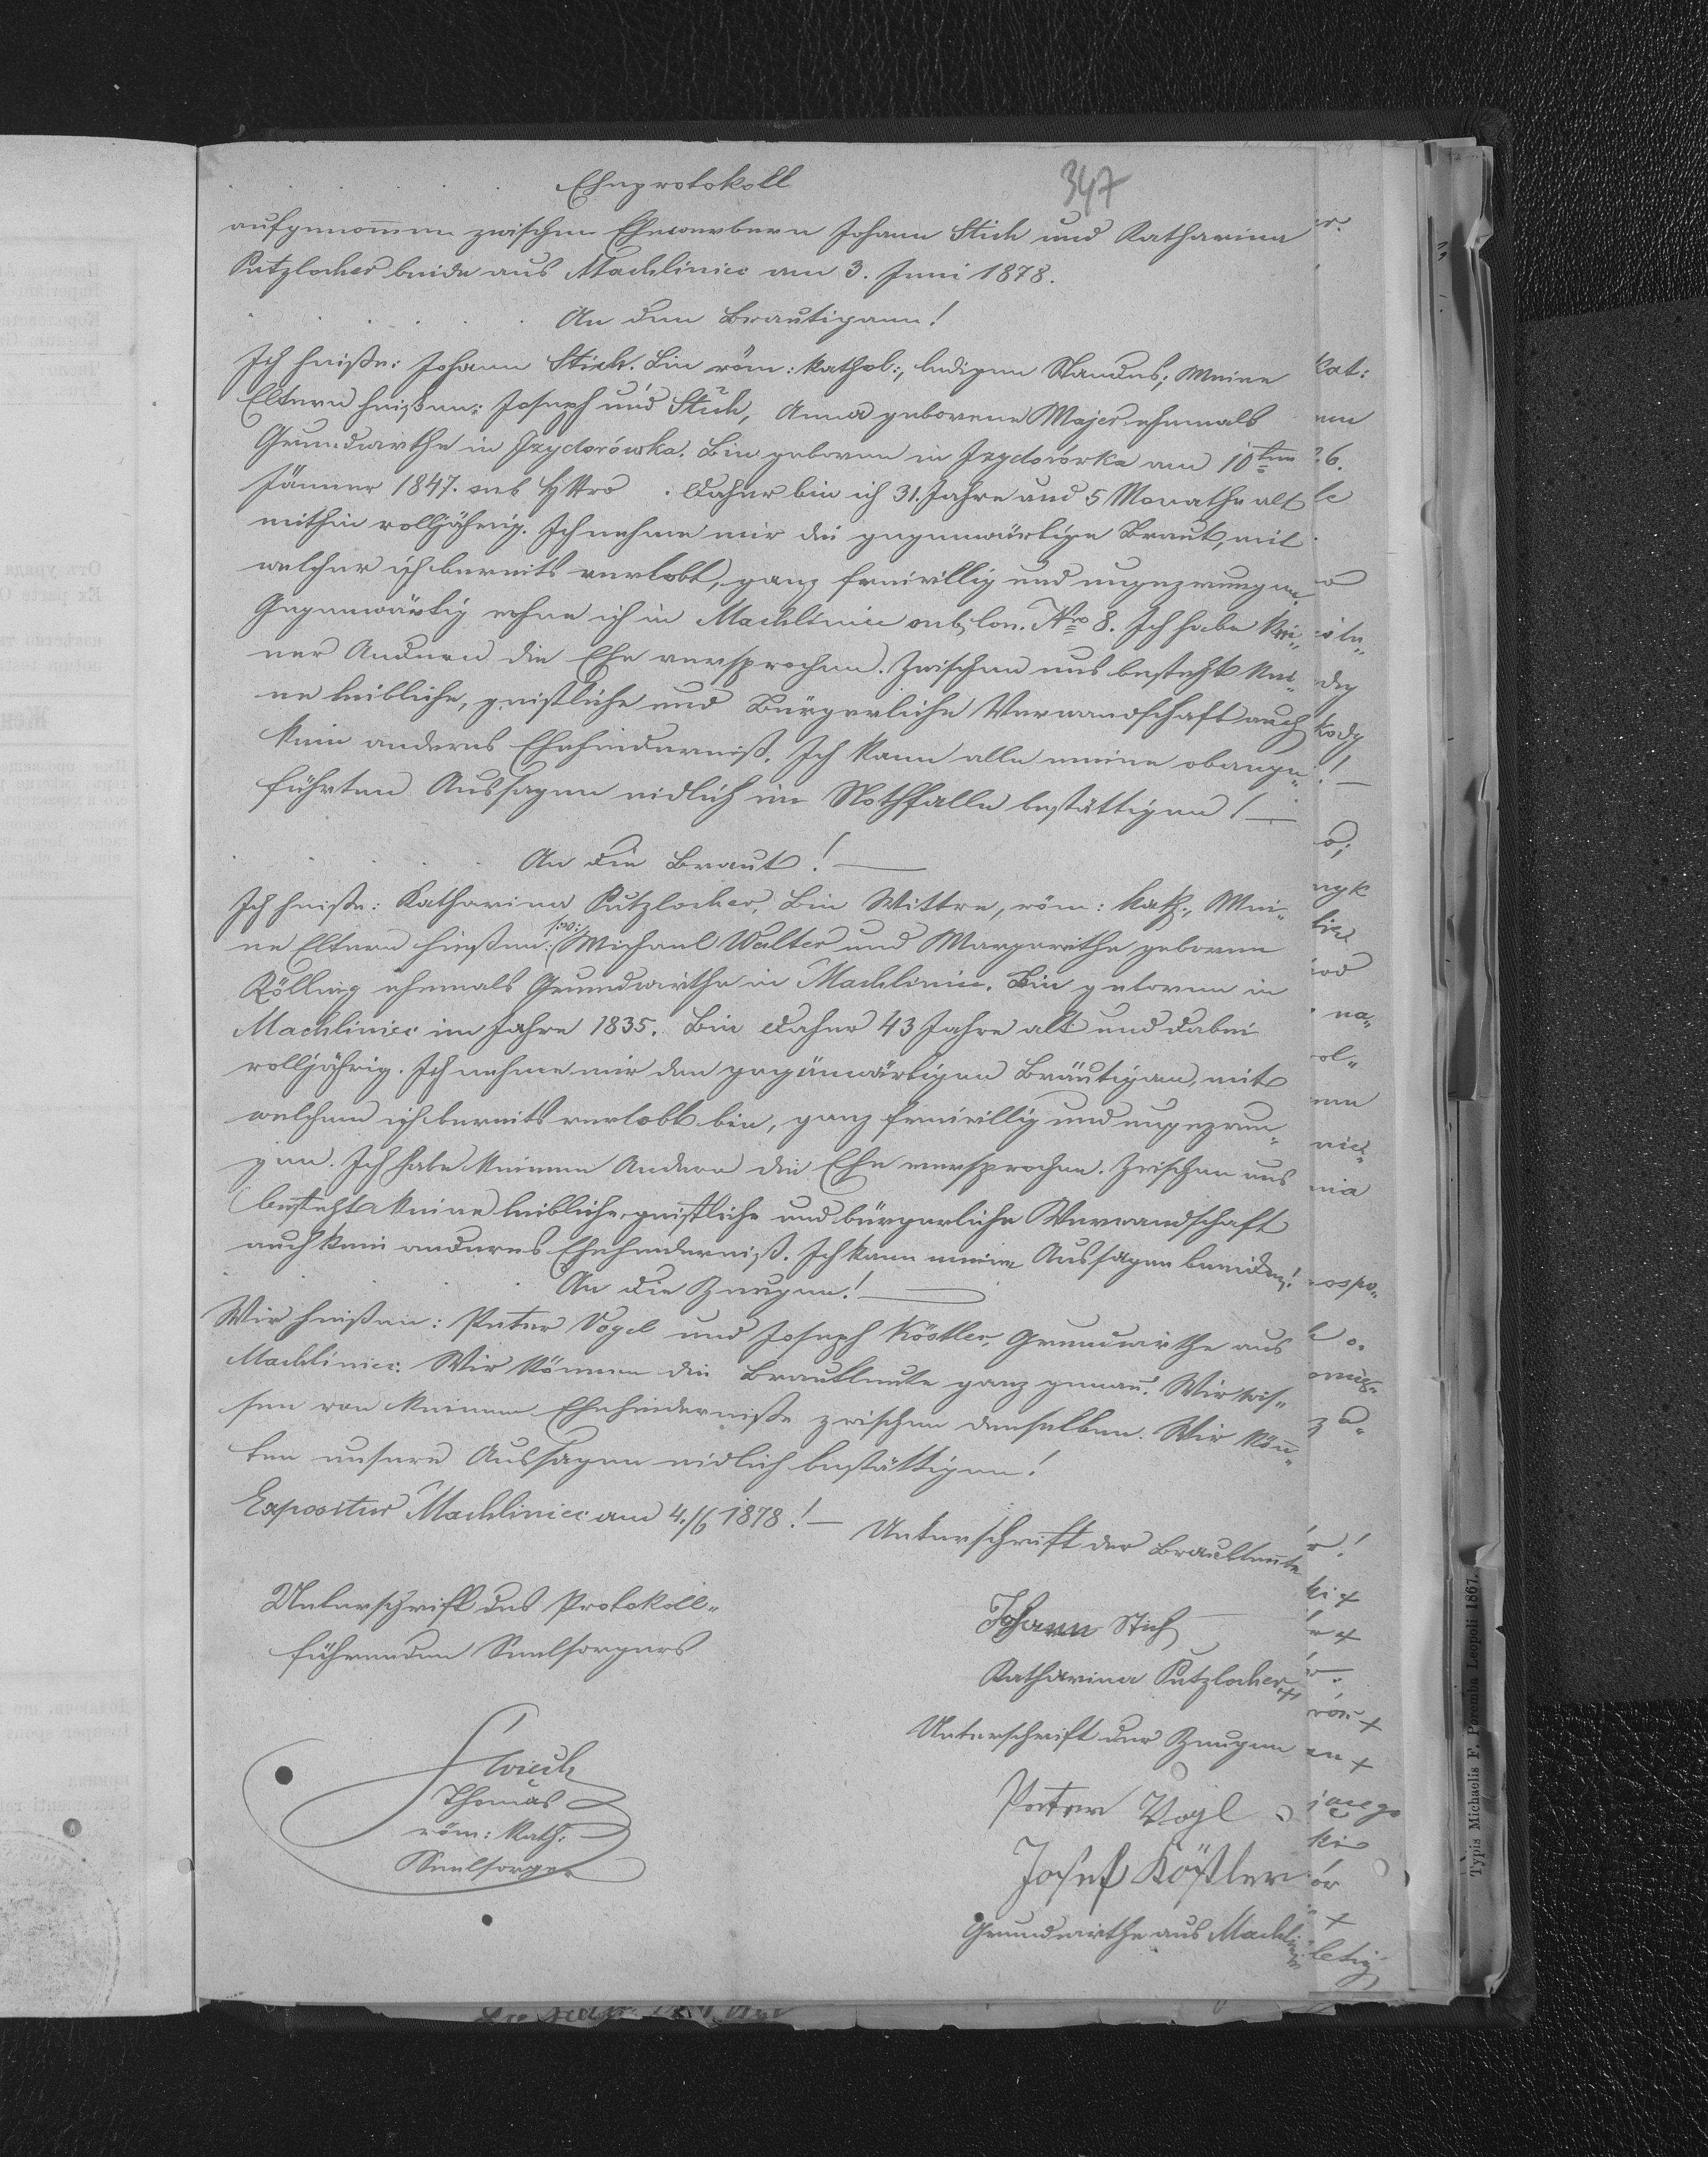 Eheprotokoll
347
aufgenommen zwischen Ehewerbern Johann Stich und Katharina
Putzlocher beide aus Machliniec am 3. Juni 1878.
An den Brautigann!
Ich heiße: Johann Stich. Bin röm: kathol:, ledigen Standes; Meine
Eltern heißen: Joseph und Stich, Anna geborene Majer ehemals
Grundwirthe in Izydorówka. Bin geboren in Izydorórka am 10ten
Jänner 1847. sub HNro . Daher bin ich 31. Jahre und 5 Monathe alt
mithin volljährig. Ich nehme mir die gegenwärtige Braut, mit
welcher ich bereits verlobt, ganz freiwillig und ungezwungen.
Gegenwärtig wohne ich in Machliniec sub Con. Nro 8. Ich habe kei„
ner Anderen die Ehe versprochen. Zwischen uns besteht kei„
ne leibliche, geistliche und Bürgerliche Verwandschaft auch
kein anderes Ehehinderniß. Ich kann alle meine obange„
führten Aussagen eidlich im Nothfalle bestättigen! —
An die Braut! —
Ich heiße: Katharina Putzlocher, Bin Wittwe, röm: kath:, Mei„
ne Eltern hießen: Michael Walter und Margarethe geborene
Rölling ehemals Grundwirthe in Machliniec. Bin geboren in
Machliniec im Jahre 1835. Bin daher 43 Jahre alt und dabei
volljährig. Ich nehme mir den gegenwärtigen Bräutigam, mit
welchem ich bereits verlobt bin, ganz freiwillig und ungezwun„
gen. Ich habe keinem Andern die Ehe versprochen. Zwischen uns
besteht keine leibliche, geistliche und bürgerliche Verwandschaft
auch kein anderes Ehehinderniß. Ich kann meine Aussagen beeiden!
An die Zeugen! —
Wir heißen: Peter Vogel und Joseph Köstler, Grundwirthe aus
Machliniec. Wir können die Brautleute ganz genau. Wir wis„
sen von keinem Ehehinderniße zwischen denselben. Wir könn„
ten unsere Aussagen eidlich bestättigen!
Expositur Machliniec am 4./6 1878! —
Unterschrift der Brautleute
Unterschrift des Protokoll„
führenden Seelsorgers
Johann Stich
Katharina Putzlocher +
Unterschrift der Zeugen
Thomas
röm: kath:
Seelsorger
Peter Vogl
Josef Köstler
Grundwirthe aus Machliniec
Typis Michaelis F. Poremba Leopoli 1867.